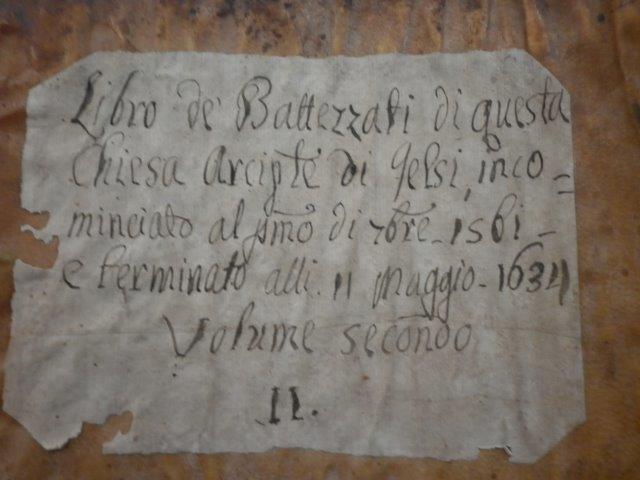 Libro de' Battezzati di questa
Chiesa Arciple di Jelsi, inco=
minciato al pmo di 7bre. 1561-
e terminato alli. 11 Maggio. 1634
Volume secondo
II.